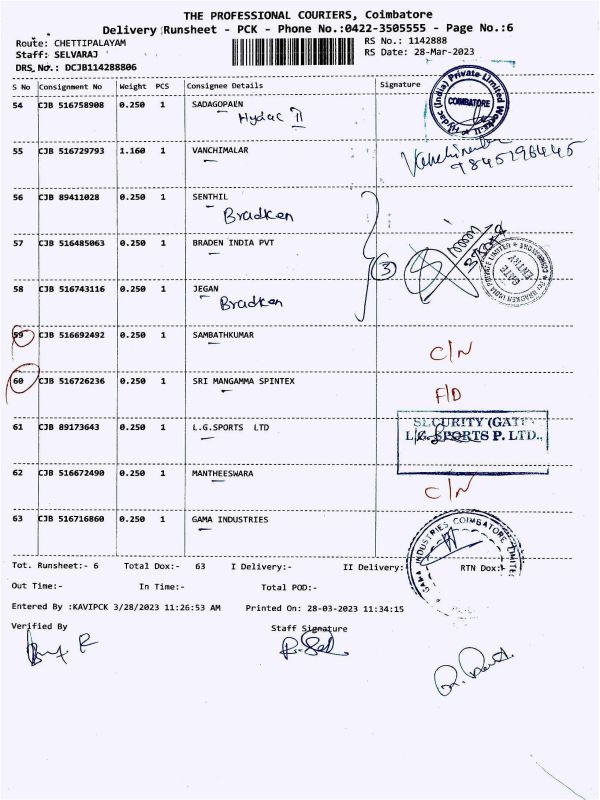 THE PROFESSIONAL COURIERS, Coimbatore
Delivery Runsheet - PCK - Phone No.:0422-3505555 - Page No.:6
Route: CHETTIPALAYAM
RS No.: 1142888
Staff: SELVARAJ
RS Date: 28-Mar-2023
DRS No.: DCJB114288806
S No Consignment No Weight PCS Consignee Details Signature
54 CJB 516758908 0.250 1 SADAGOPAEN
Hydac II
(India) Private Limited
COIMBATORE
55 CJB 516729793 1.160 1 VANCHIMALAR
56 CJB 89411028 0.250 1 SENTHIL
Bradken
57 CJB 516485063 0.250 1 BRADEN INDIA PVT
3
GATE
ENTRY
58 CJB 516743116 0.250 1 JEGAN
Bradken
59 CJB 516692492 0.250 1 SAMBATHKUMAR
C/N
60 CJB 516726236 0.250 1 SRI MANGAMMA SPINTEX
F/D
61 CJB 89173643 0.250 1 L.G.SPORTS LTD
SECURITY (GATE)
L.G. SPORTS P. LTD.,
62 CJB 516672490 0.250 1 MANTHEESWARA
C/N
63 CJB 516716860 0.250 1 GAMA INDUSTRIES
GAMA INDUSTRIES COIMBATORE LIMITED
Tot. Runsheet:- 6 Total Dox:- 63 I Delivery:- II Delivery: RTN Dox:-
Out Time:- In Time:- Total POD:-
Entered By :KAVIPCK 3/28/2023 11:26:53 AM Printed On: 28-03-2023 11:34:15
Verified By Staff Signature